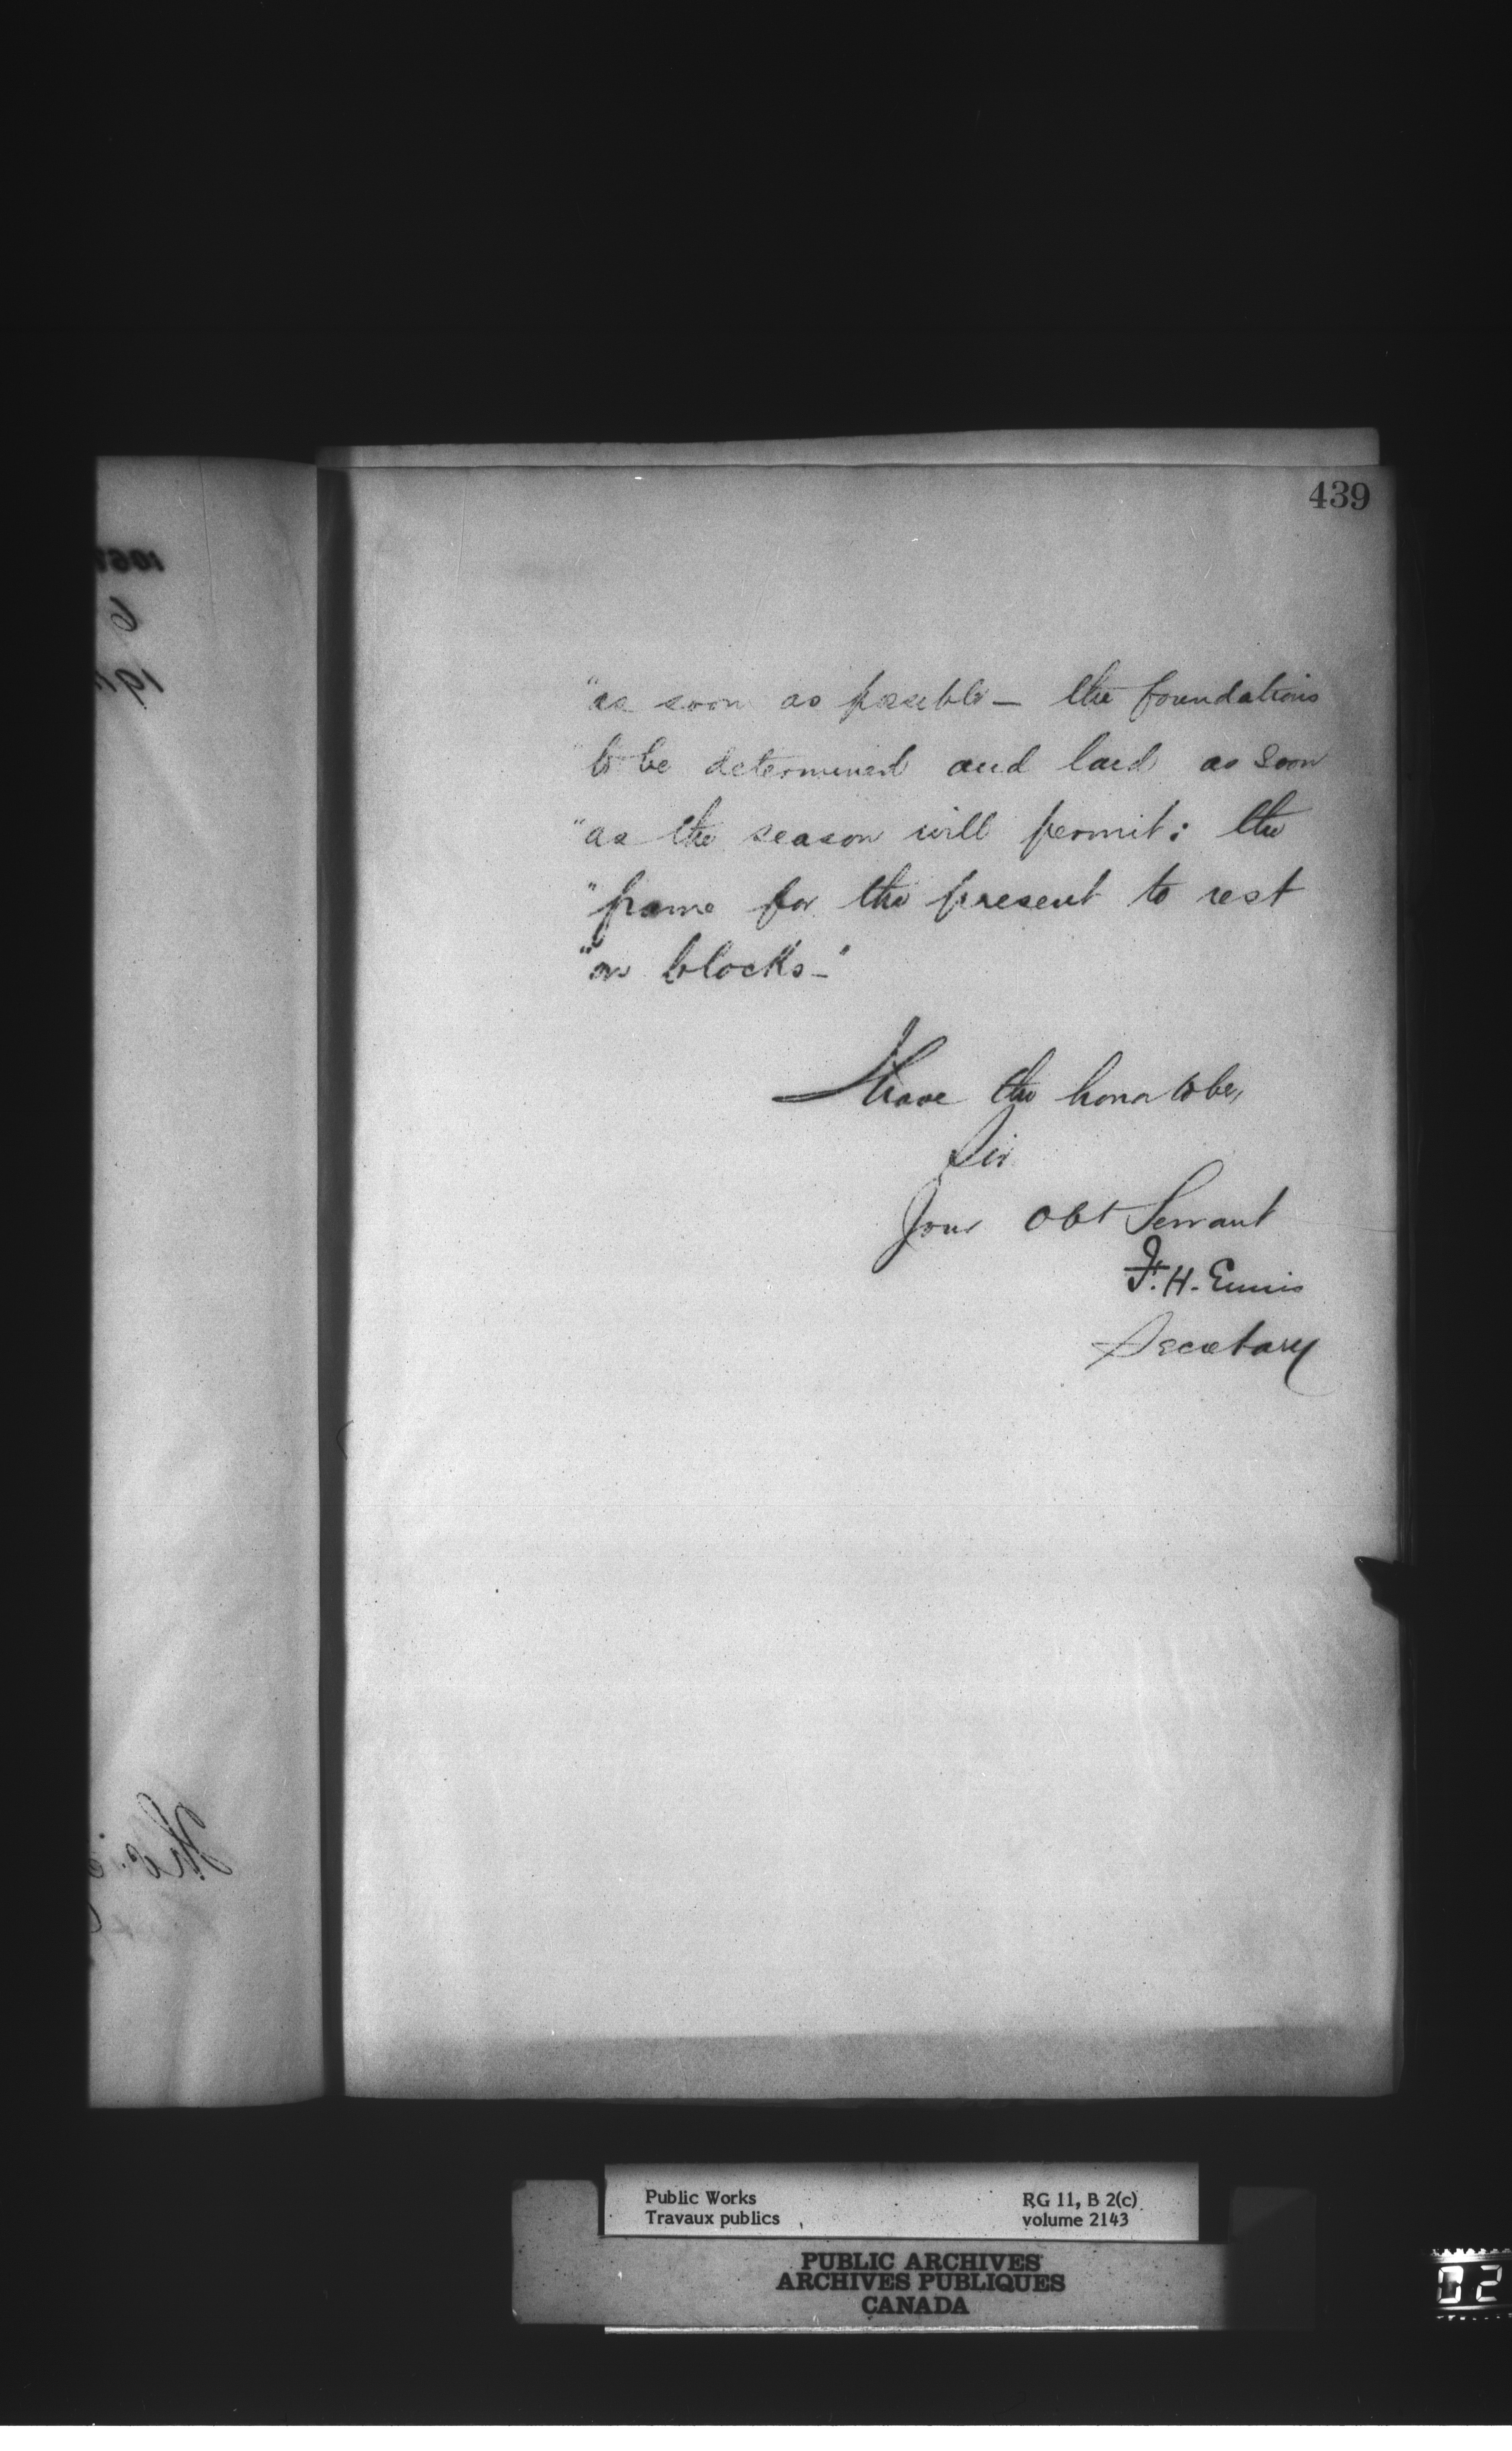 439
"as soon as possible — the foundations
"to be determined and laid as soon
"as the season will permit: the
"frame for the present to rest
"on blocks—"
I have the honor to be,
Sir
Your Obt Servant
F. H. Ennis
Secretary
Public Works
Travaux publics
RG 11, B 2(c)
volume 2143
PUBLIC ARCHIVES
ARCHIVES PUBLIQUES
CANADA
02